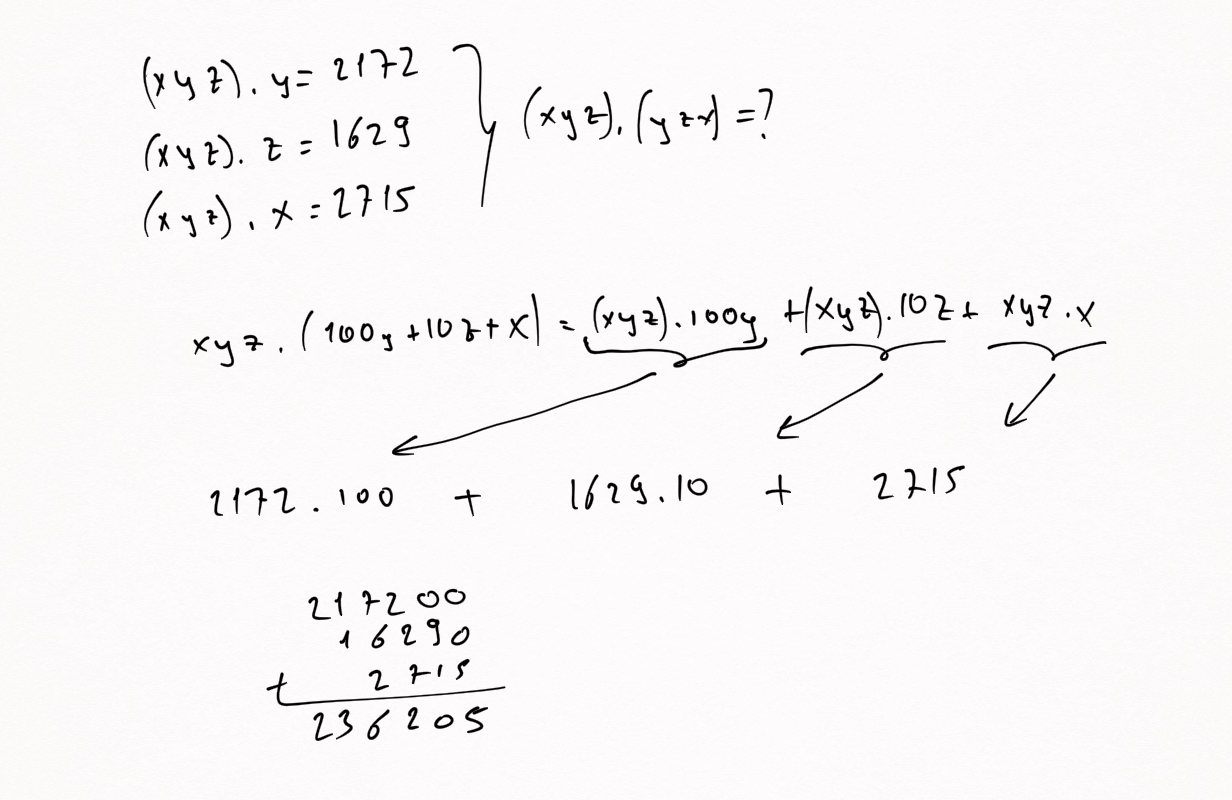 (xyz). y= 2172
(xyz). z = 1629
(xyz). x = 2715
(xyz).(yzx) =?
xyz. (100y+10z+x) = (xyz).100y +(xyz).10z+ xyz.x
2172.100 + 1629.10 + 2715
217200
16290
+ 2715
236205